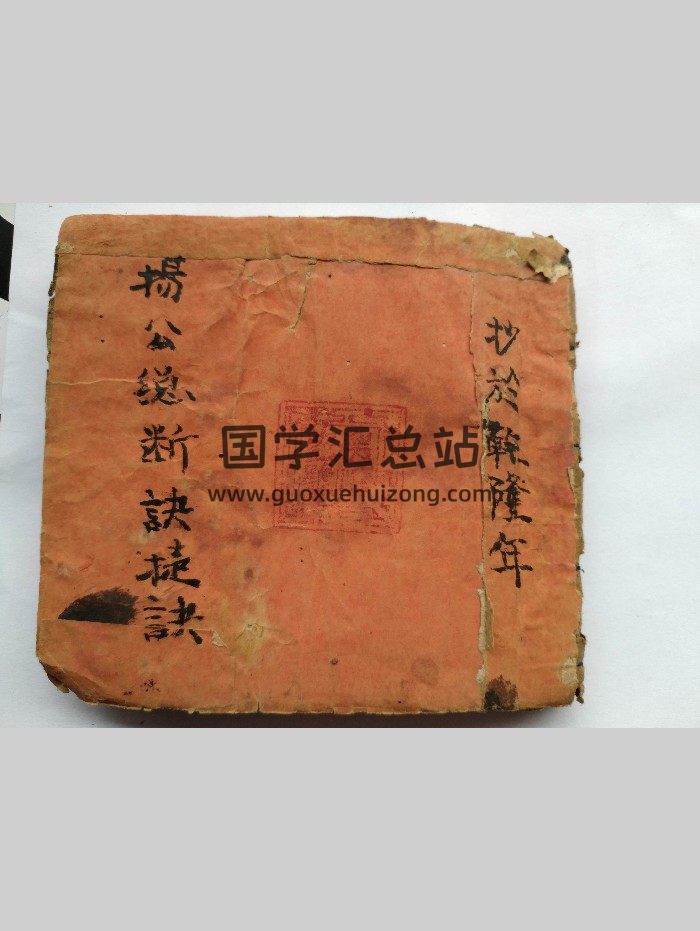 抄於乾隆年
揚公總断訣捷訣
国学汇总站
www.guoxuehuizong.com